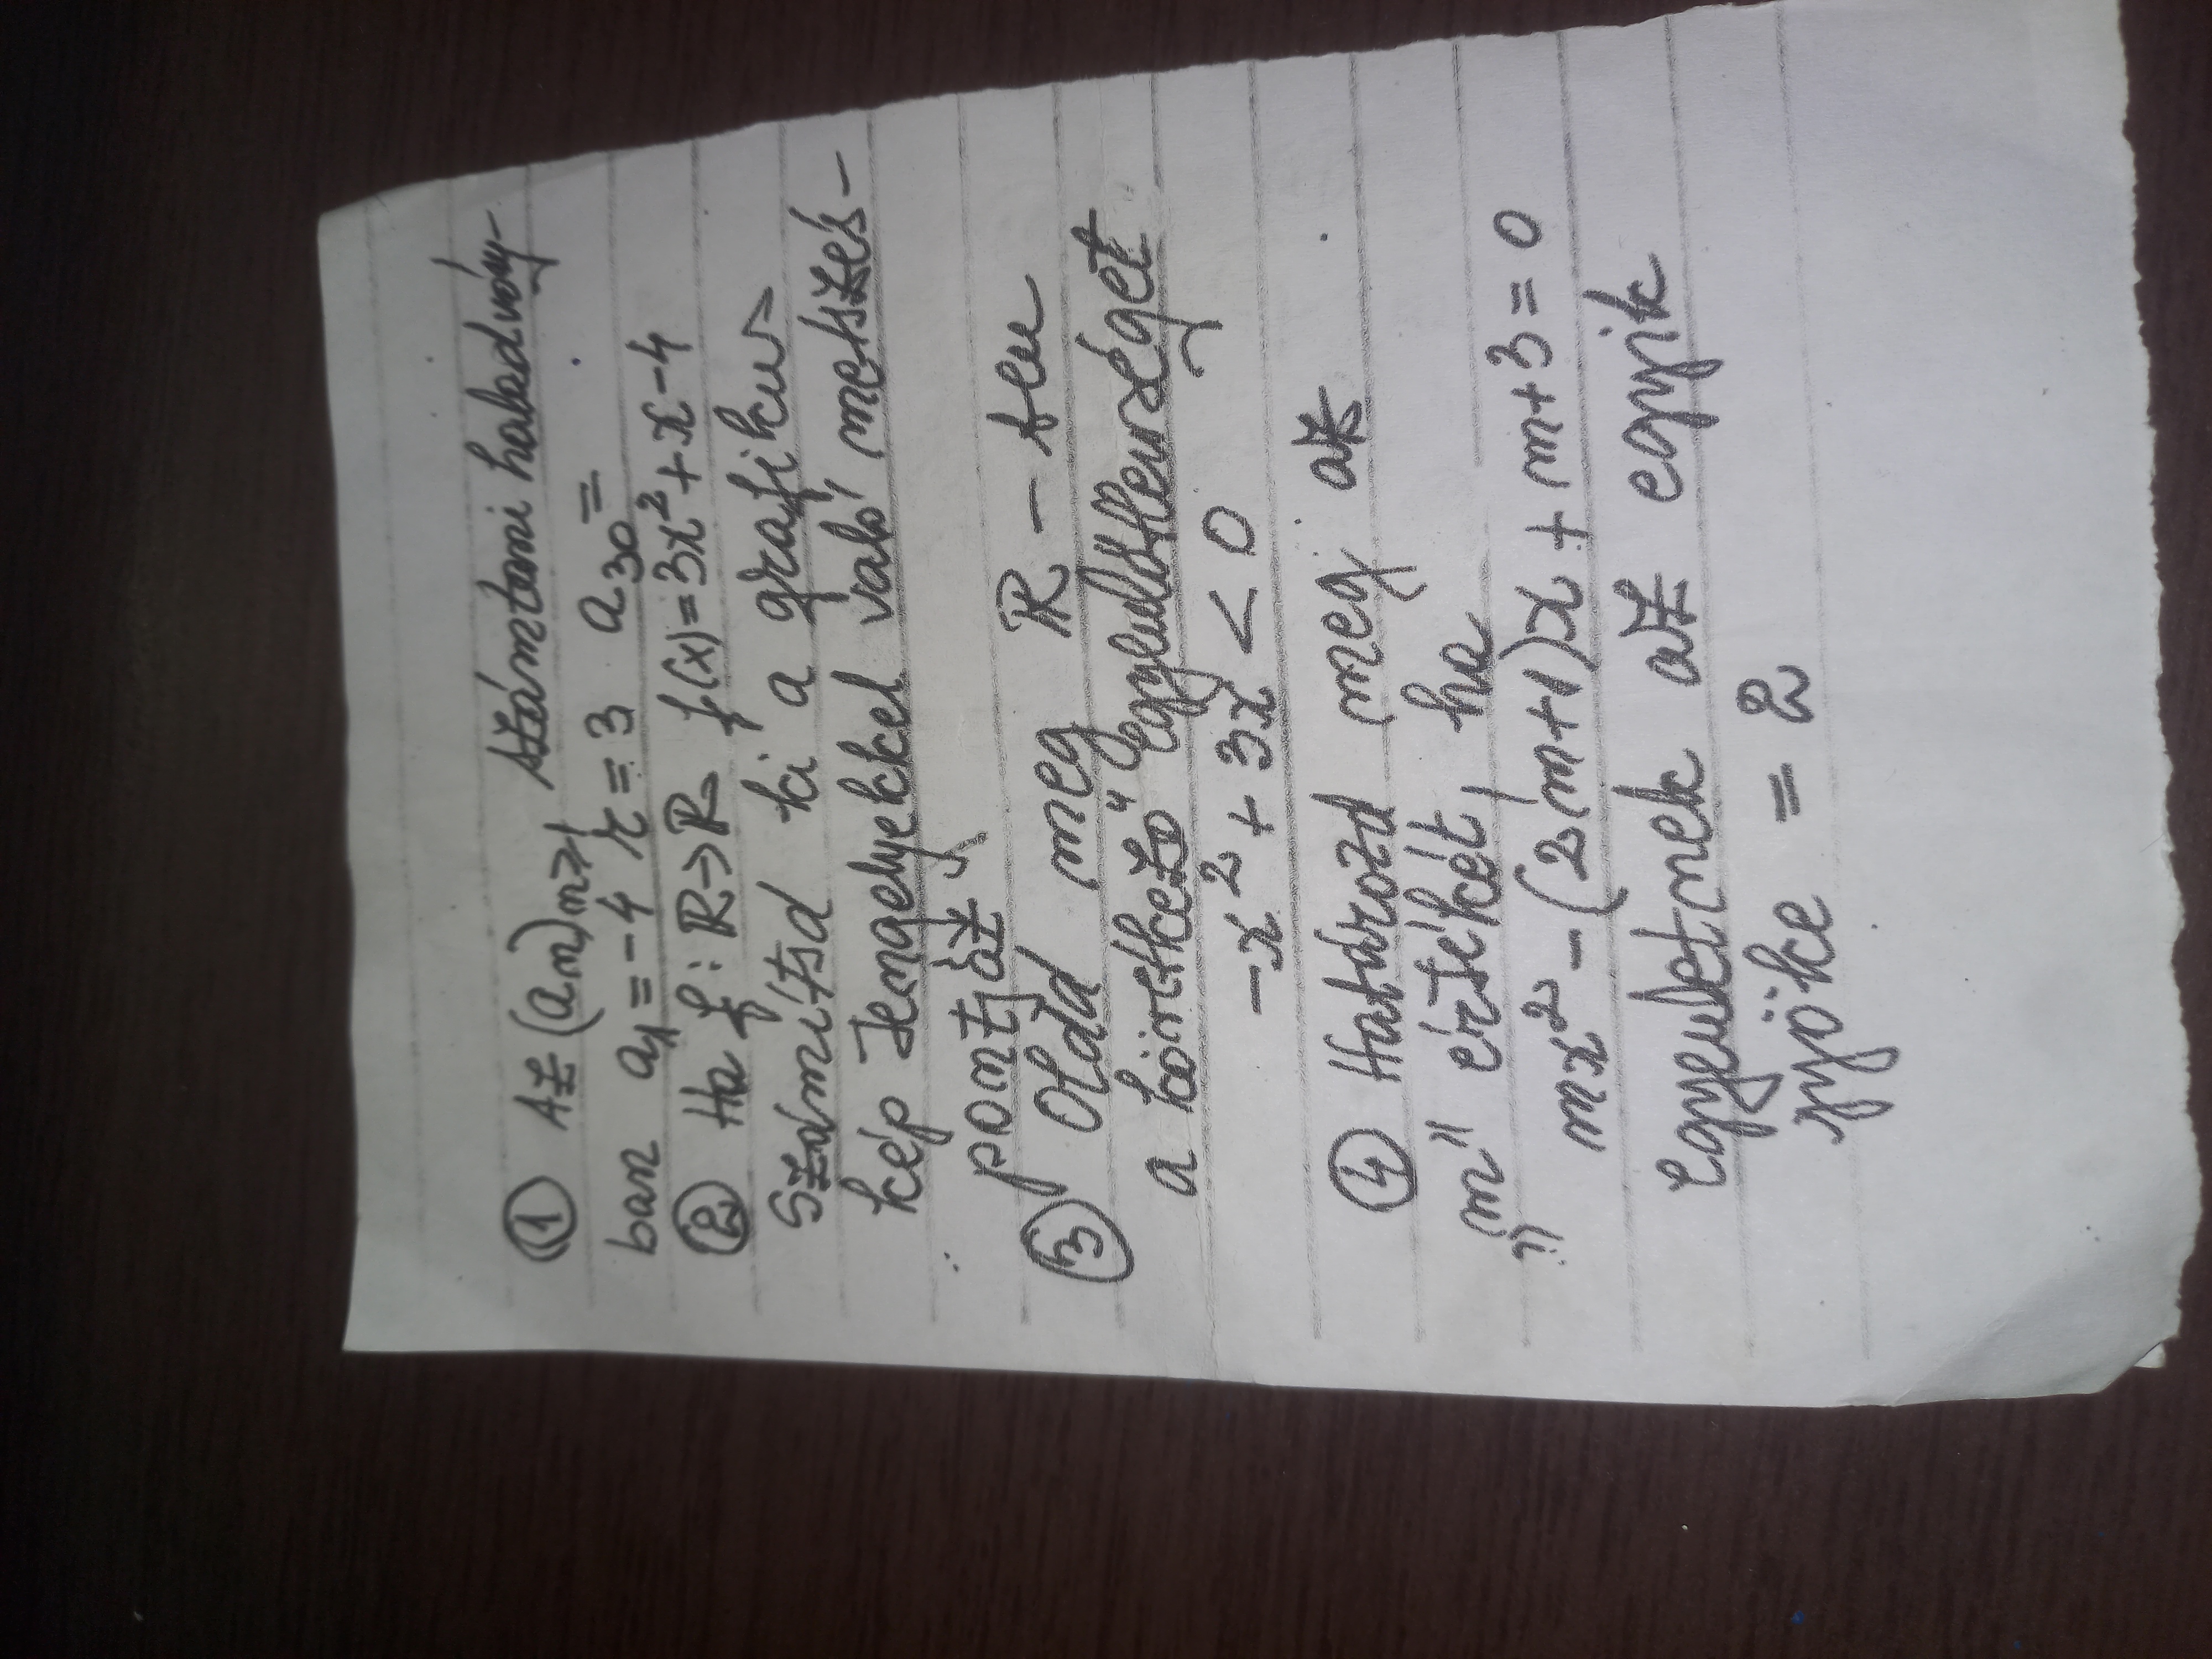 ① Az (an)n≥1 számtani haladvány-
ban a1 = -4 r = 3 a30 =
② Ha f : ℝ→ℝ f(x) = 3x² + x - 4
Számítsd ki a grafikus
kép tengelyekkel való metszés-
pontját.
③ Old meg ℝ - ben
a következő egyenlőtlenséget
-x² + 3x < 0
④ Határozd meg az
"m" értékét, ha
mx² - (2m+1)x + m+3 = 0
egyenletnek az egyik
gyöke = 2